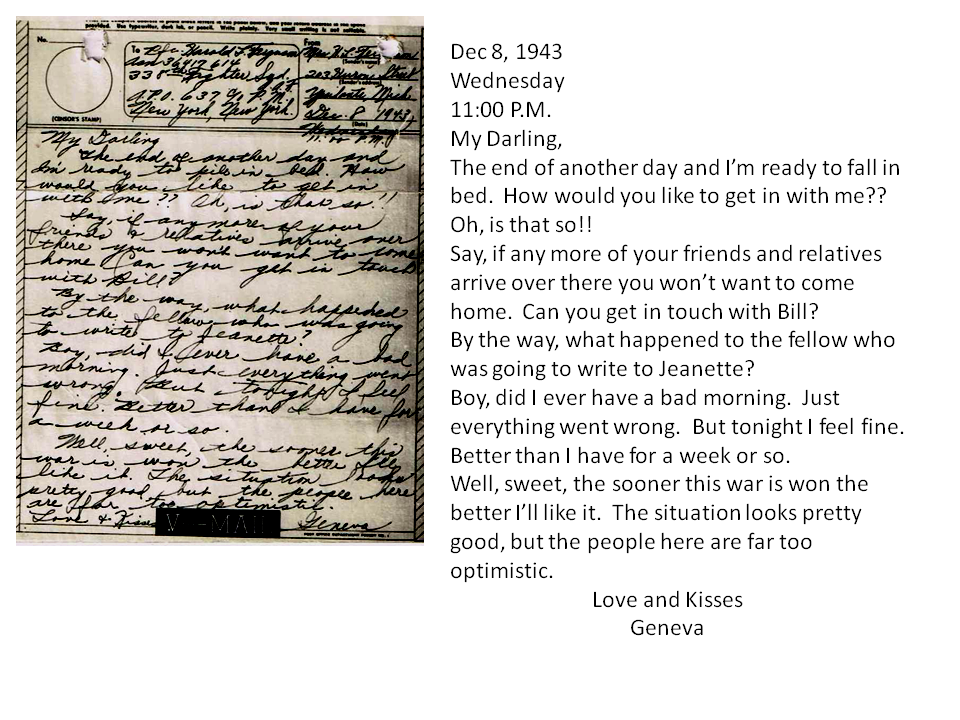 provided. Use typewriter, dark ink, or pencil. Write plainly. Very small writing is not suitable.
No.
(CENSOR'S STAMP)
To
Pfc. Harold L.
Asn 36417614
338th Fighter Sqd.
A.P.O. 637 % P.M.
New York, New York.
From
(Sender's name)
203 Huron Street
(Sender's address)
Mich
Dec. 8 1943
(Date)
Wednesday
11:00 P.M.
My Darling
The end of another day and
I'm ready to pile in bed. How
would you like to get in
with me?? Oh, is that so!!
Say, if any more of your
friends & relatives arrive over
there you won't want to come
home. Can you get in touch
with Bill?
By the way, what happened
to the fellow who was going
to write to Jeanette?
Boy, did I ever have a bad
morning. Just everything went
wrong. But tonight I feel
fine. Better than I have for
a week or so.
Well, sweet, the sooner this
war is won the better I'll
like it. The situation looks
pretty good, but the people here
are far too optimistic.
Love & Kisses
Geneva
V-MAIL
Dec 8, 1943
Wednesday
11:00 P.M.
My Darling,
The end of another day and I’m ready to fall in
bed.  How would you like to get in with me??
Oh, is that so!!
Say, if any more of your friends and relatives
arrive over there you won’t want to come
home.  Can you get in touch with Bill?
By the way, what happened to the fellow who
was going to write to Jeanette?
Boy, did I ever have a bad morning.  Just
everything went wrong.  But tonight I feel fine.
Better than I have for a week or so.
Well, sweet, the sooner this war is won the
better I’ll like it.  The situation looks pretty
good, but the people here are far too
optimistic.
Love and Kisses
Geneva